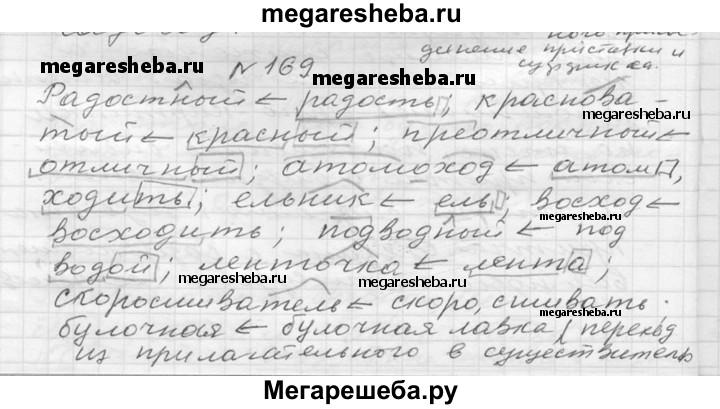 megaresheba.ru
дение приставки и
суффикса.
megaresheba.ru
№169
Радостный ← радость; краснова-
megaresheba.ru
тый ← красный; преотличный ←
отличный; атомоход ← атом,
ходить; ельник ← ель; восход ←
megaresheba.ru
megaresheba.ru
восходить; подводный ← под
megaresheba.ru
водой; ленточка ← лента;
megaresheba.ru
megaresheba.ru
скоросшиватель ← скоро, сшивать.
булочная ← булочная лавка (переход
из прилагательного в существитель
Мегарешеба.ру